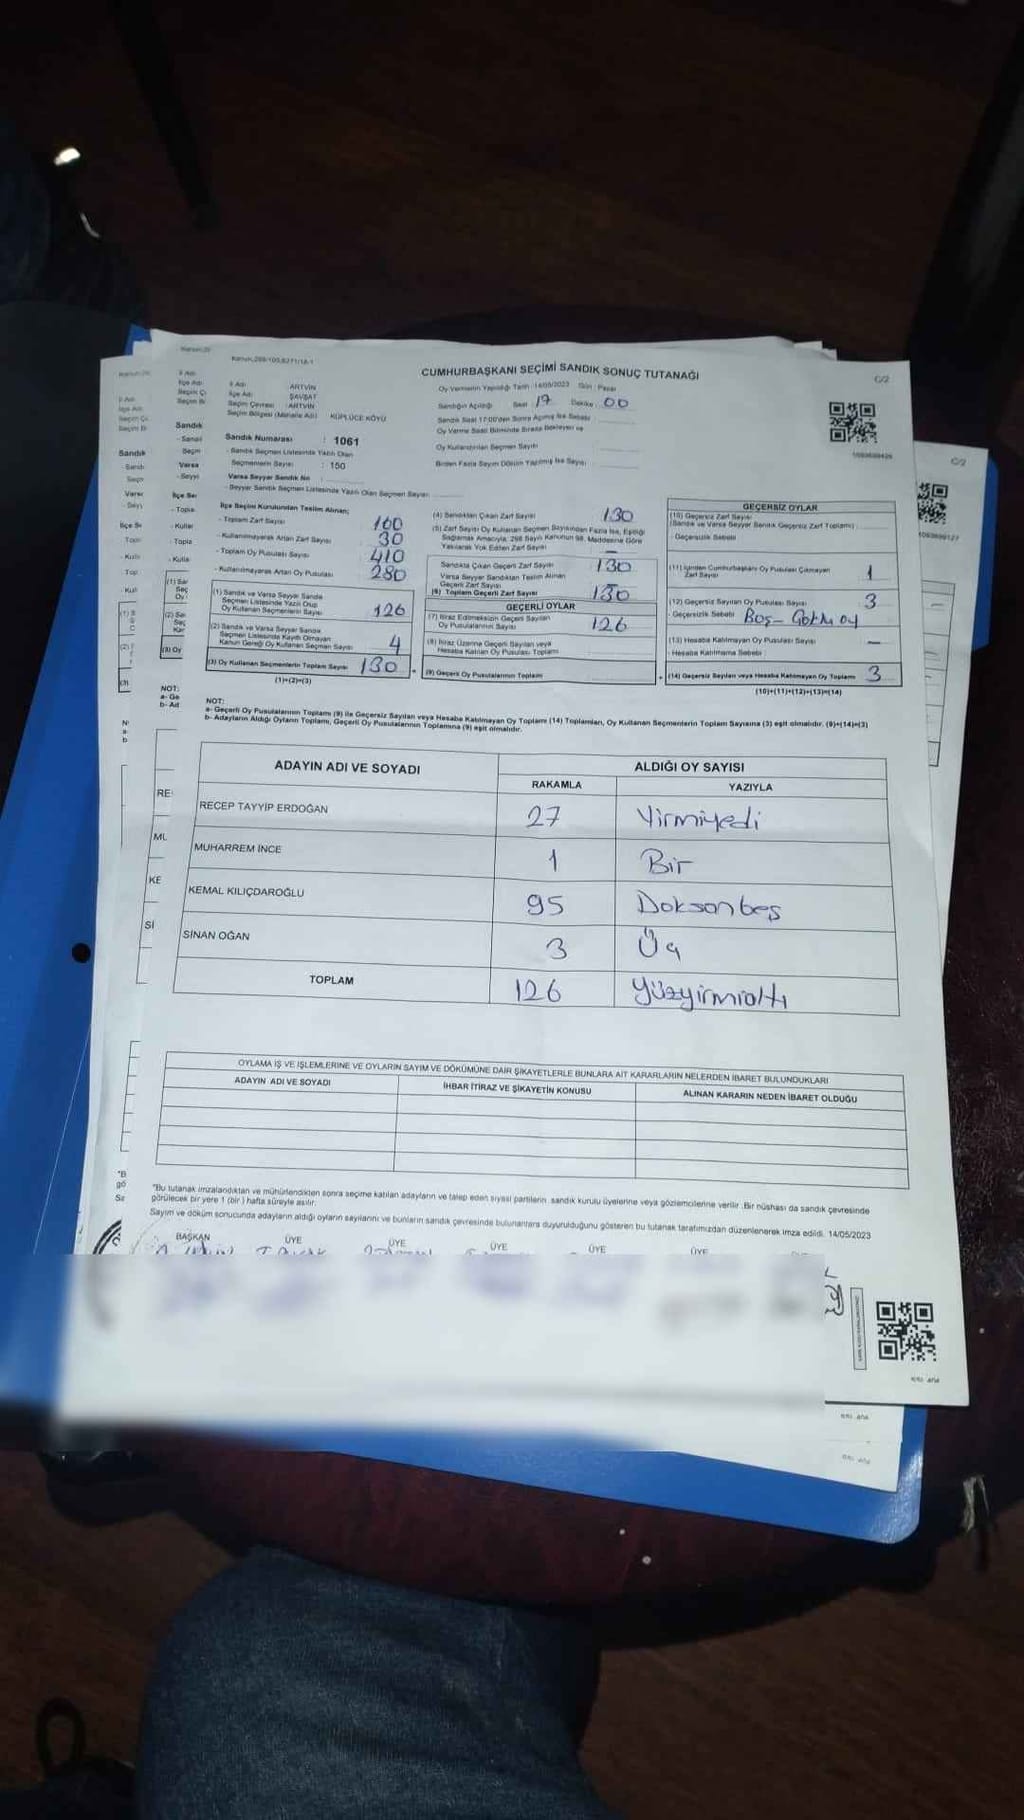 CUMHURBAŞKANI SEÇİMİ SANDIK SONUÇ TUTANAĞI
C/2
İl Adı : ARTVİN
İlçe Adı : ŞAVŞAT
Seçim Çevresi : ARTVİN
Seçim Bölgesi (Mahalle Adı) : KÜPLÜCE KÖYÜ
Sandık Numarası : 1061
- Sandık Seçmen Listesinde Yazılı Olan
Seçmenlerin Sayısı : 150
Varsa Seyyar Sandık No :
- Seyyar Sandık Seçmen Listesinde Yazılı Olan Seçmen Sayısı:
Oy Vermenin Yapıldığı Tarih : 14/05/2023 Gün : Pazar
Sandığın Açıldığı Saat 17 Dakika 00
Sandık Saat 17:00'den Sonra Açılmış İse Sebebi
Oy Verme Saati Bitiminde Sırada Bekleyen ve
Oy Kullandırılan Seçmen Sayısı
Birden Fazla Sayım Döküm Yapılmış İse Sayısı
İlçe Seçim Kurulundan Teslim Alınan;
- Toplam Zarf Sayısı 160
- Kullanılmayarak Artan Zarf Sayısı 30
- Toplam Oy Pusulası Sayısı 410
- Kullanılmayarak Artan Oy Pusulası 280
(1) Sandık ve Varsa Seyyar Sandık
Seçmen Listesinde Yazılı Olup
Oy Kullanan Seçmenlerin Sayısı 126
(2) Sandık ve Varsa Seyyar Sandık
Seçmen Listesinde Kayıtlı Olmayan
Kanun Gereği Oy Kullanan Seçmen Sayısı 4
(3) Oy Kullanan Seçmenlerin Toplam Sayısı 130
(1)+(2)=(3)
(4) Sandıktan Çıkan Zarf Sayısı 130
(5) Zarf Sayısı Oy Kullanan Seçmen Sayısından Fazla İse, Eşitliği
Sağlamak Amacıyla, 298 Sayılı Kanunun 98. Maddesine Göre
Yakılarak Yok Edilen Zarf Sayısı —
Sandıkta Çıkan Geçerli Zarf Sayısı 130
Varsa Seyyar Sandıktan Teslim Alınan
Geçerli Zarf Sayısı
(6) Toplam Geçerli Zarf Sayısı 130
GEÇERLİ OYLAR
(7) İtiraz Edilmeksizin Geçerli Sayılan
Oy Pusulalarının Sayısı 126
(8) İtiraz Üzerine Geçerli Sayılan veya
Hesaba Katılan Oy Pusulası Toplamı
(9) Geçerli Oy Pusulalarının Toplamı
GEÇERSİZ OYLAR
(10) Geçersiz Zarf Sayısı
(Sandık ve Varsa Seyyar Sandık Geçersiz Zarf Toplamı)
- Geçersizlik Sebebi
(11) İçinden Cumhurbaşkanı Oy Pusulası Çıkmayan
Zarf Sayısı 1
(12) Geçersiz Sayılan Oy Pusulası Sayısı 3
- Geçersizlik Sebebi Boş-
(13) Hesaba Katılmayan Oy Pusulası Sayısı —
- Hesaba Katılmama Sebebi
(14) Geçersiz Sayılan veya Hesaba Katılmayan Oy Toplamı 3
(10)+(11)+(12)+(13)=(14)
NOT:
a- Geçerli Oy Pusulalarının Toplamı (9) ile Geçersiz Sayılan veya Hesaba Katılmayan Oy Toplamı (14) Toplamları, Oy Kullanan Seçmenlerin Toplam Sayısına (3) eşit olmalıdır. (9)+(14)=(3)
b- Adayların Aldığı Oyların Toplamı, Geçerli Oy Pusulalarının Toplamına (9) eşit olmalıdır.
ADAYIN ADI VE SOYADI
ALDIĞI OY SAYISI
RAKAMLA YAZIYLA
RECEP TAYYİP ERDOĞAN 27 Yirmiyedi
MUHARREM İNCE 1 Bir
KEMAL KILIÇDAROĞLU 95 Doksanbeş
SİNAN OĞAN 3 Üç
TOPLAM 126 Yüzyirmialtı
OYLAMA İŞ VE İŞLEMLERİNE VE OYLARIN SAYIM VE DÖKÜMÜNE DAİR ŞİKAYETLERLE BUNLARA AİT KARARLARIN NELERDEN İBARET BULUNDUKLARI
ADAYIN ADI VE SOYADI İHBAR İTİRAZ VE ŞİKAYETİN KONUSU ALINAN KARARIN NEDEN İBARET OLDUĞU
"Bu tutanak imzalandıktan ve mühürlendikten sonra seçime katılan adayların ve talep eden siyasi partilerin sandık kurulu üyelerine veya gözlemcilerine verilir. Bir nüshası da sandık çevresinde
görülecek bir yere 1 (bir ) hafta süreyle asılır.
Sayım ve döküm sonucunda adayların aldığı oyların sayılarını ve bunların sandık çevresinde bulunanlara duyurulduğunu gösteren bu tutanak tarafımızdan düzenlenerek imza edildi. 14/05/2023
BAŞKAN ÜYE ÜYE ÜYE ÜYE ÜYE